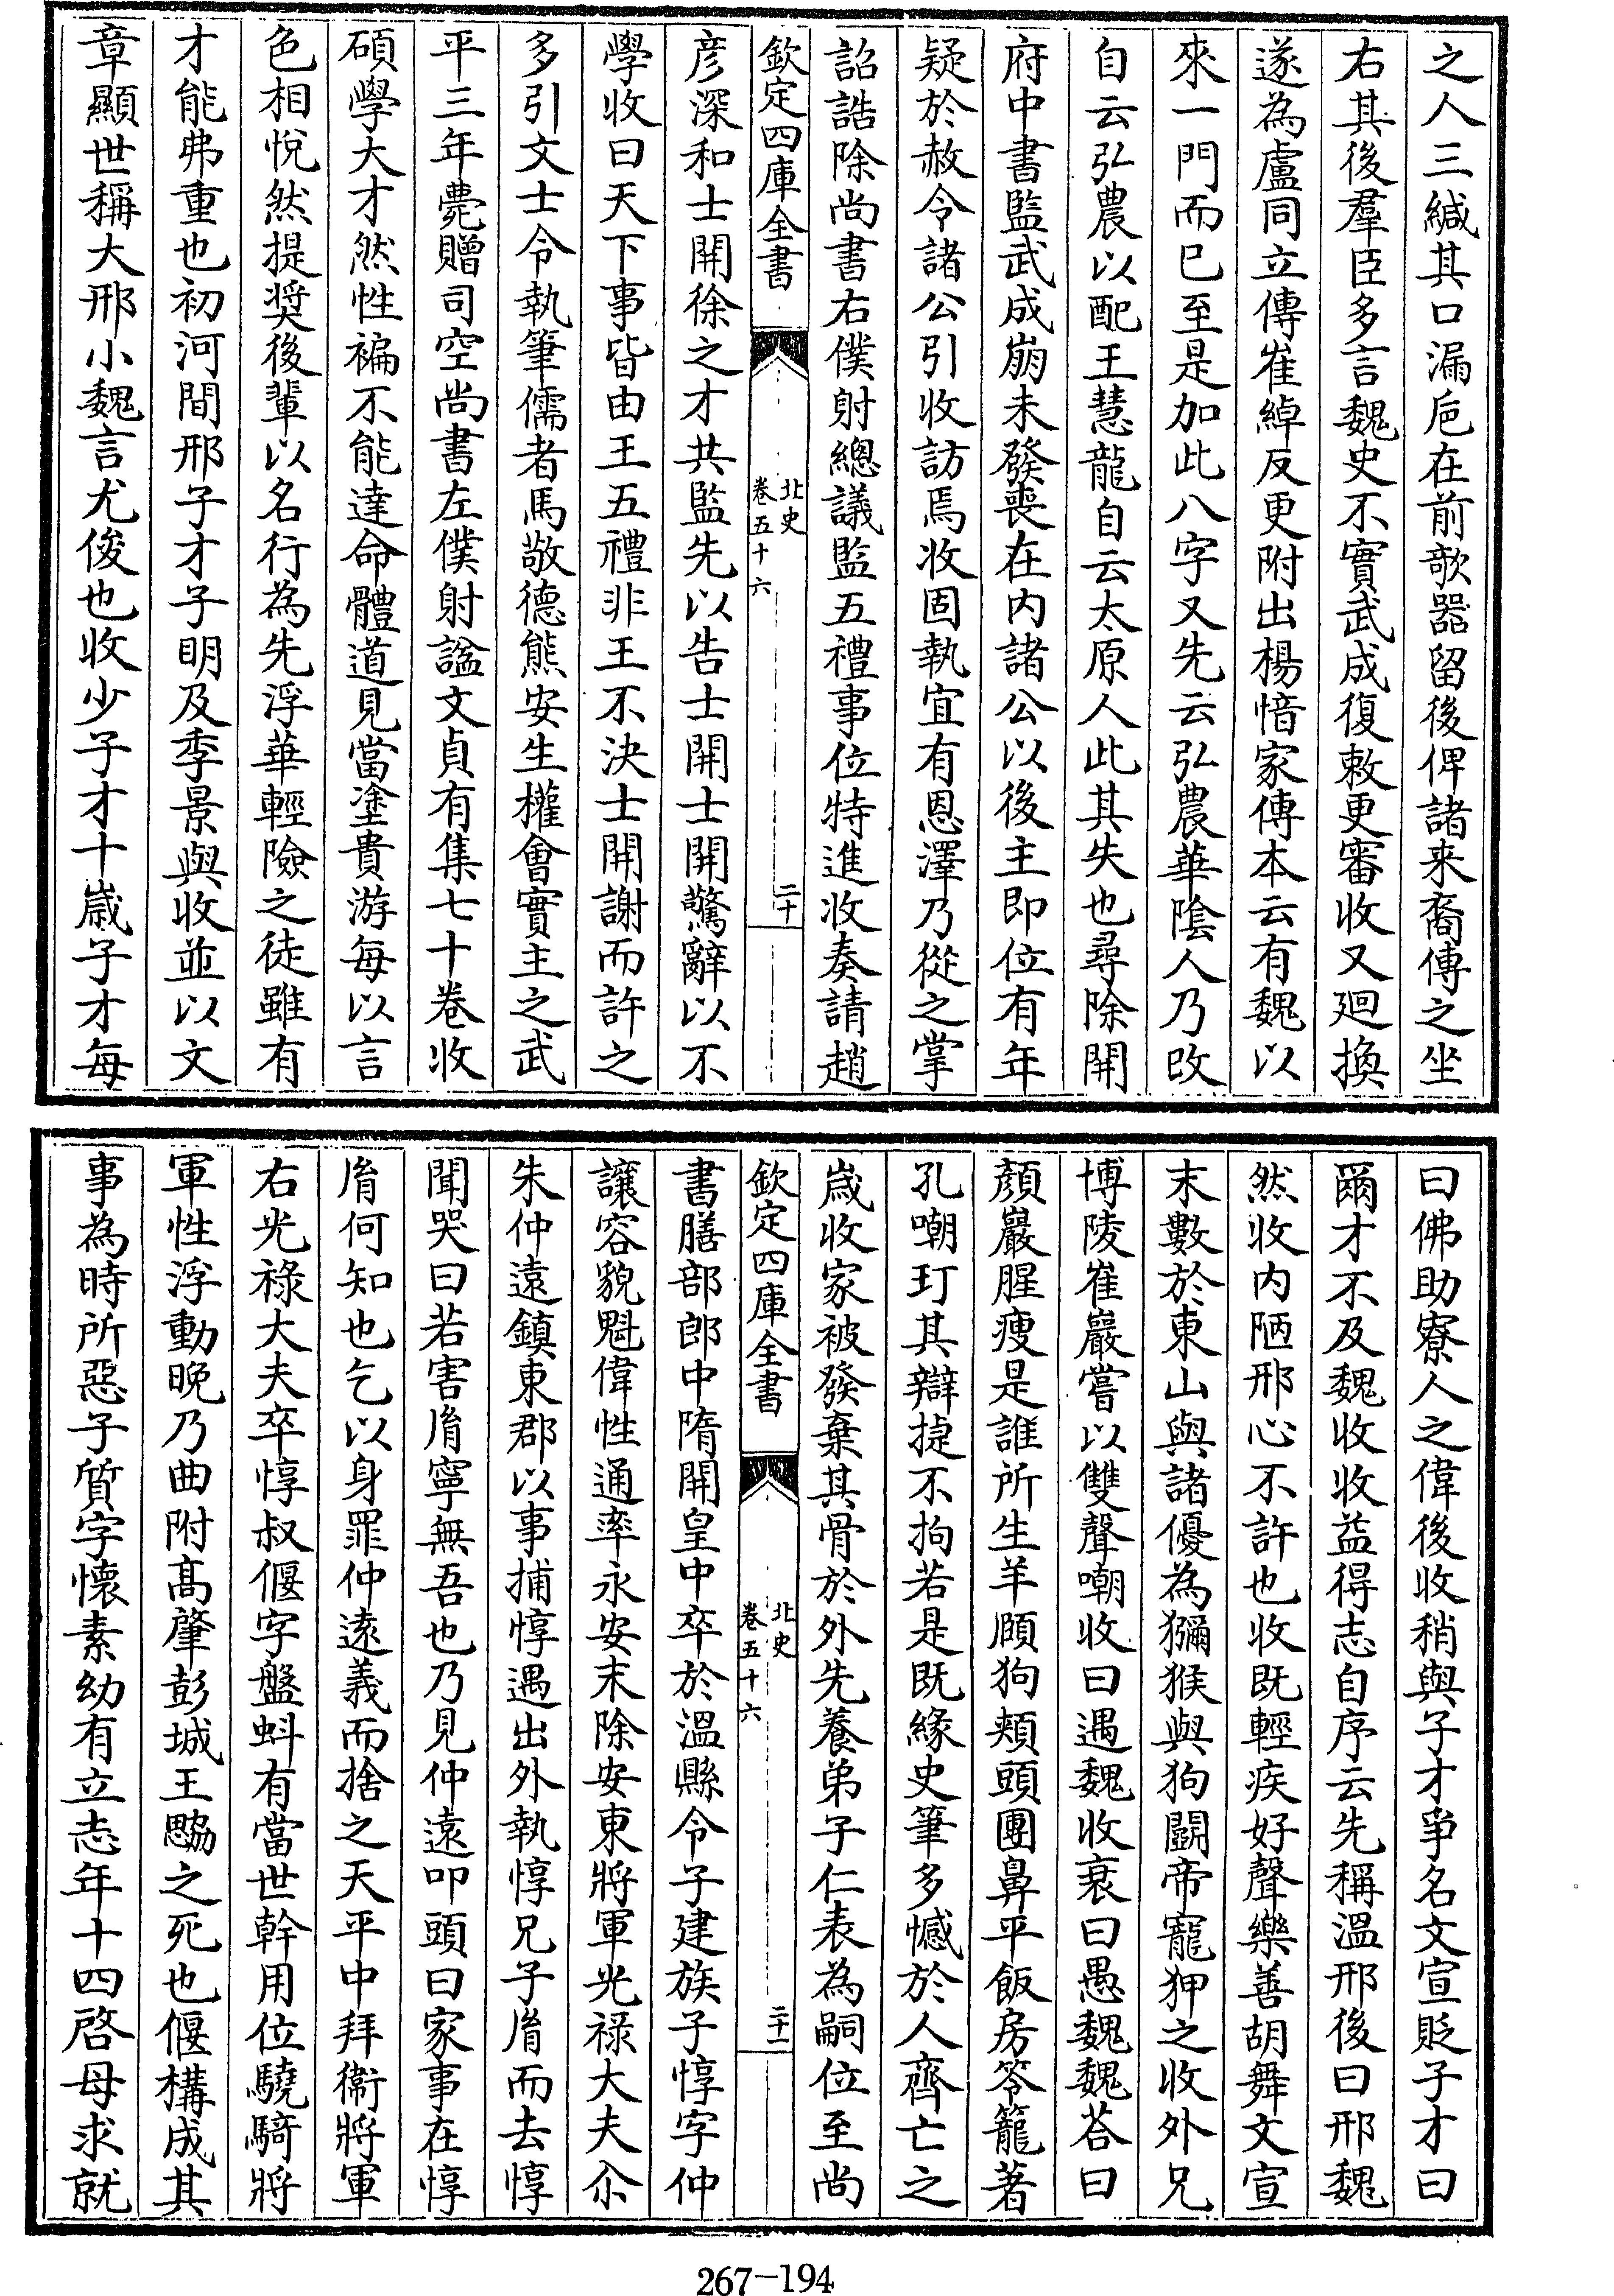 之人三緘其口漏巵在前欹器留後俾諸來裔傳之坐
右其後羣臣多言魏史不實武成復敕更審收又廻換
遂為盧同立傳崔綽反更附出楊愔家傳本云有魏以
來一門而已至是加此八字又先云弘農華陰人乃改
自云弘農以配王慧龍自云太原人此其失也尋除開
府中書監武成崩未發喪在内諸公以後主即位有年
疑於赦令諸公引收訪焉收固執宜有恩澤乃從之掌
詔誥除尚書右僕射總議監五禮事位特進收奏請趙
欽定四庫全書
北史
卷五十六
二十
彦深和士開徐之才共監先以告士開士開驚辭以不
學收曰天下事皆由王五禮非王不決士開謝而許之
多引文士令執筆儒者馬敬德熊安生權會實主之武
平三年薨贈司空尚書左僕射諡文貞有集七十卷收
碩學大才然性褊不能達命體道見當塗貴游每以言
色相悅然提奬後輩以名行為先浮華輕險之徒雖有
才能弗重也初河間邢子才子明及季景與收並以文
章顯世稱大邢小魏言尤俊也收少子才十歲子才每
曰佛助寮人之偉後收稍與子才爭名文宣貶子才曰
爾才不及魏收收益得志自序云先稱溫邢後曰邢魏
然收内陋邢心不許也收既輕疾好聲樂善胡舞文宣
末數於東山與諸優為獼猴與狗鬬帝寵狎之收外兄
博陵崔巖嘗以雙聲嘲收曰遇魏收衰曰愚魏魏荅曰
顏巖腥瘦是誰所生羊頤狗頰頭團鼻平飯房笭籠著
孔嘲玎其辯捷不拘若是既緣史筆多憾於人齊亡之
歲收家被發棄其骨於外先養弟子仁表為嗣位至尚
欽定四庫全書
北史
卷五十六
二十一
書膳部郎中隋開皇中卒於溫縣令子建族子惇字仲
讓容貌魁偉性通率永安末除安東將軍光祿大夫尒
朱仲遠鎮東郡以事捕惇遇出外執惇兄子胤而去惇
聞哭曰若害胤寧無吾也乃見仲遠叩頭曰家事在惇
胤何知也乞以身罪仲遠義而捨之天平中拜衞將軍
右光祿大夫卒惇叔偃字盤虯有當世幹用位驍騎將
軍性浮動晚乃曲附髙肇彭城王勰之死也偃構成其
事為時所惡子質字懷素幼有立志年十四啓母求就
267-194